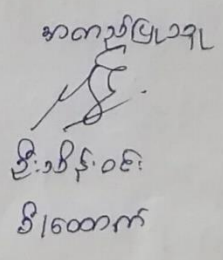 အတည်ပြုသူ
ဦးသိန်းဝင်း
ဒု၊ထောက်